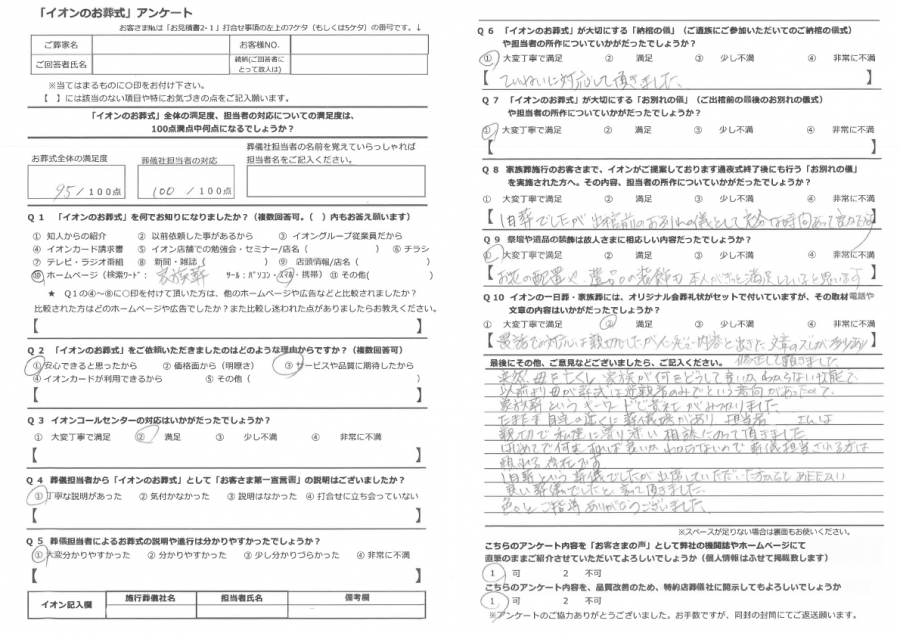 「イオンのお葬式」アンケート
お客さま№は「お見積書2-1」打合せ事項の左上の7ケタ（もしくは5ケタ）の番号です。↓
ご葬家名
お客様NO.
ご回答者氏名
続柄(ご回答者にとって故人は)
※当てはまるものに○印をお付け下さい。
【　】には該当のない項目や特にお気づきの点をご記入願います。
「イオンのお葬式」全体の満足度、担当者の対応についての満足度は、
100点満点中何点になるでしょうか？
お葬式全体の満足度
95/100点
葬儀社担当者の対応
100/100点
葬儀社担当者の名前を覚えていらっしゃれば
担当者名をご記入ください。
Q１　「イオンのお葬式」を何でお知りになりましたか？（複数回答可。(　) 内もお答え願います）
① 知人からの紹介　② 以前依頼した事があるから　③ イオングループ従業員だから
④ イオンカード請求書　⑤ イオン店舗での勉強会・セミナー/店名（　）　⑥ チラシ
⑦ テレビ・ラジオ番組　⑧ 新聞・雑誌（　）　⑨ 店頭情報/店名（　）
⑩ ホームページ（検索ﾜｰﾄﾞ：家族葬　ﾂｰﾙ：ﾊﾟｿｺﾝ・ｽﾏﾎ・携帯）⑪ その他(　)
★　Q1の④～⑧に○印を付けて頂いた方は、他のホームページや広告などと比較されましたか？
比較された方はどのホームページや広告でしたか？また比較し迷われた点がありましたらお教えください。
【　】
Q２　「イオンのお葬式」をご依頼いただきましたのはどのような理由からですか？（複数回答可）
①安心できると思ったから　② 価格面から（明瞭さ）　③サービスや品質に期待したから
④イオンカードが利用できるから　⑤ その他（　）
【　】
Q３　イオンコールセンターの対応はいかがだったでしょうか？
①　大変丁寧で満足　②　満足　③　少し不満　④　非常に不満
【　】
Q４　葬儀担当者から「イオンのお葬式」として「お客さま第一宣言書」の説明はございましたか？
①丁寧な説明があった　② 気付かなかった　③ 説明はなかった　④ 打合せに立ち会っていない
【　】
Q５　葬儀担当者によるお葬式の説明や進行は分かりやすかったでしょうか？
①大変分かりやすかった　② 分かりやすかった　③ 少し分かりづらかった　④ 非常に不満
【　】
イオン記入欄
施行葬儀社名
担当者氏名
備考欄
Q６　「イオンのお葬式」が大切にする「納棺の儀」（ご遺族にご参加いただいてのご納棺の儀式）
や担当者の所作についていかがだったでしょうか？
①　大変丁寧で満足　②　満足　③　少し不満　④　非常に不満
【ていねいに対応して頂きました。】
Q７　「イオンのお葬式」が大切にする「お別れの儀」（ご出棺前の最後のお別れの儀式）
や担当者の所作についていかがだったでしょうか？
①　大変丁寧で満足　②　満足　③　少し不満　④　非常に不満
【　】
Q８　家族葬施行のお客さまで、イオンがご提案しております通夜式終了後にも行う「お別れの儀」
を実施された方へ。その内容、担当者の所作についていかがだったでしょうか？
①　大変丁寧で満足　②　満足　③　少し不満　④　非常に不満
【1日葬でしたが出棺前のお別れの儀として充分な時間あって
Q９　祭壇や遺品の装飾は故人さまに相応しい内容だったでしょうか？
①　大変丁寧で満足　②　満足　③　少し不満　④　非常に不満
【お花の配置や、遺品の装飾も本人がきっと満足していると思います】
Q10　イオンの一日葬・家族葬には、オリジナル会葬礼状がセットで付いていますが、その取材電話や
文章の内容はいかがだったでしょうか？
①　大変丁寧で満足　②　満足　③　少し不満　④　非常に不満
電話での対応は親切でしたが
最後にその他、ご意見などございましたら、ご記入ください。　修正して頂きました
突然母を亡くし家族が何をどうして良いかわからない状態で、
以前より母が葬式は近親者のみでという意向があったので
家族葬というキーワードで貴社がみつかりました
たまたま自宅の近くに葬儀場があり　担当者　さんは
親切で私達に寄り添い相談にのって頂きました
はじめてで何を
頼れる存在です
1日葬という葬儀でしたが出席していただいた方からも
良い葬儀でしたと言って頂きました
色々とご指導ありがとうございました
※スペースが足りない場合は裏面もお使いください。
こちらのアンケート内容を「お客さまの声」として弊社の機関誌やホームページにて
直筆のままご紹介させていただいてよろしいでしょうか（個人情報はふせて掲載致します）
1　可　2　不可
こちらのアンケート内容を、品質改善のため、特約店葬儀社に開示してもよろしいでしょうか
1　可　2　不可
※アンケートのご協力ありがとうございました。お手数ですが、同封の封筒にてご返送願います。